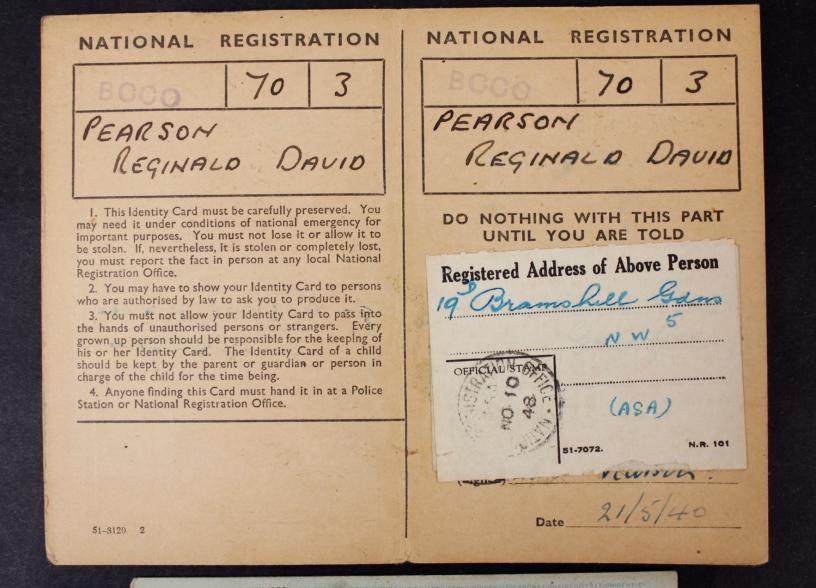 NATIONAL REGISTRATION
BOCO 70 3
PEARSON
REGINALD DAVID
1. This Identity Card must be carefully preserved. You
may need it under conditions of national emergency for
important purposes. You must not lose it or allow it to
be stolen. If, nevertheless, it is stolen or completely lost,
you must report the fact in person at any local National
Registration Office.
2. You may have to show your Identity Card to persons
who are authorised by law to ask you to produce it.
3. You must not allow your Identity Card to pass into
the hands of unauthorised persons or strangers. Every
grown up person should be responsible for the keeping of
his or her Identity Card. The Identity Card of a child
should be kept by the parent or guardian or person in
charge of the child for the time being.
4. Anyone finding this Card must hand it in at a Police
Station or National Registration Office.
51-3120 2
NATIONAL REGISTRATION
BOCO 70 3
PEARSON
REGINALD DAVID
DO NOTHING WITH THIS PART
UNTIL YOU ARE TOLD
Registered Address of Above Person
Bramshill Gdns
NW 5
OFFICIAL STAMP
REGISTRATION OFFICE
NO 10
48
(ASA)
51-7072. N.R. 101
(Signed)
Date 21/5/40